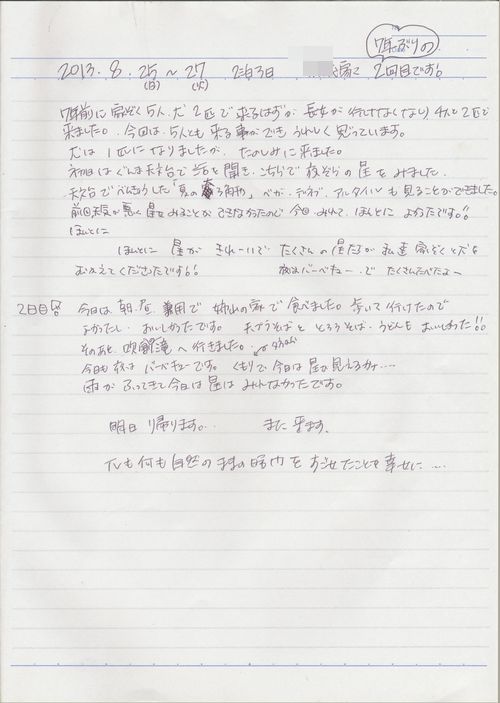 7年ぶりの
2013. 8. 25 ~ 27 2泊3日 家で 2回目です。
(日) (火)
7年前に家ぞく5人、犬2匹で来るはずが長女が行けなくなり4人と2匹で
来ました。今回は、5人とも来る事ができうれしく思っています。
犬は1匹になりましたが、たのしみに来ました。
初日はぐんま天文台で話を聞き、こちらで夜ぞらの星をみました。
天文台でべんきょうした「夏の大三角形」ベガ、デネブ、アルタイルも見ることができました。
前回天気が悪く星をみることができなかったので今回みれて、ほんとによかったです!!
ほんとに
ほんとに 星が きれーいで たくさんの星たちが私達家ぞくと犬を
むかえてくださったです!! 夜はバーベキューでたくさんたべたよー
2日目 今日は朝、昼兼用で 姉山の家で食べました。歩いて行けたので
よかったし、おいしかったです。天ぷらそばととろろそば、うどんもおいしかった!!
そのあと、吹割滝へ行きました。
今日も夜はバーベキューです。くもりで今日は星が見えるかナ....
雨がふってきて今日は星はみれなかったです。
明日 帰ります。. また 来ます。
TVも何も自然のままの時間をすごせたことを幸せに....